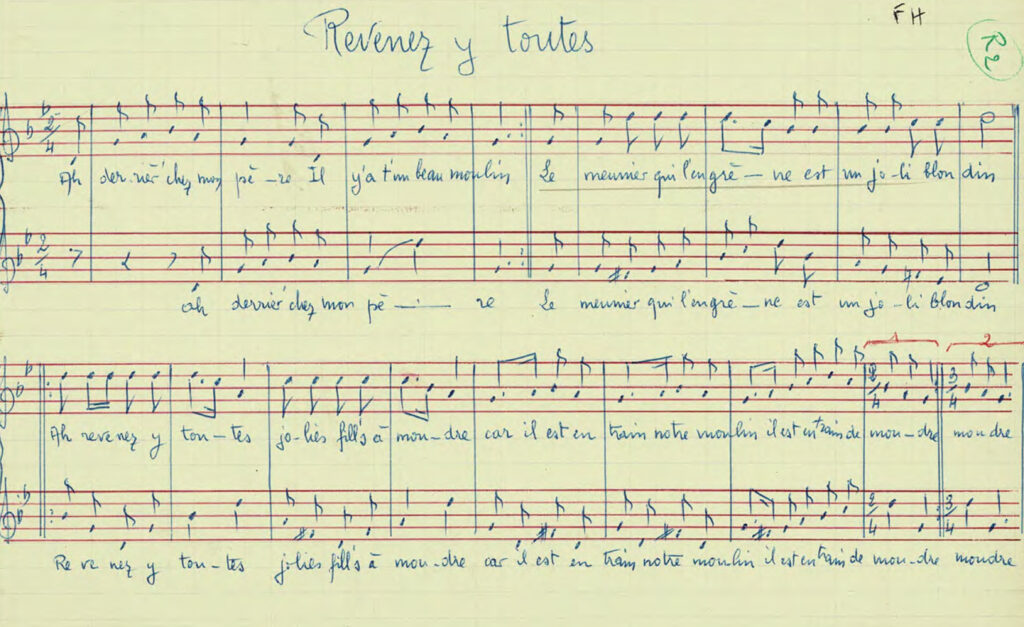 FH
R2
Revenez y toutes
2/4
Ah der-rièr' chez mon pè-re Il y'a t'un beau moulin Le meunier qui l'engrè-ne est un jo-li blondin
2/4
Ah derrièr' chez mon pè-re Le meunier qui l'engrè-ne est un jo-li blondin
1 2
2/4 3/4
Ah revenez y tou-tes jo-lies fill's à mou-dre car il est en train notre moulin il est en train de mou-dre moudre
2/4 3/4
Re ve nez y tou-tes jolies fill's à mou-dre car il est en train notre moulin il est en train de mou-dre moudre